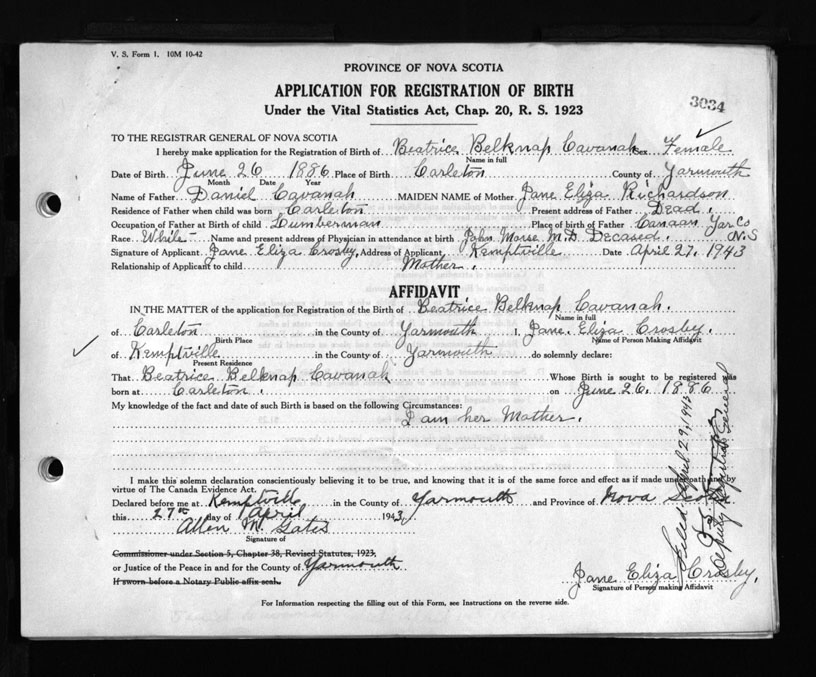 V. S. Form 1. 10M 10-42
PROVINCE OF NOVA SCOTIA
APPLICATION FOR REGISTRATION OF BIRTH
3034
Under the Vital Statistics Act, Chap. 20, R. S. 1923
TO THE REGISTRAR GENERAL OF NOVA SCOTIA
I hereby make application for the Registration of Birth of Beatrice Belknap Cavanah Sex Female
Name in full
Date of Birth June 26 1886 Place of Birth Carleton County of Yarmouth
Month Date Year
Name of Father Daniel Cavanah MAIDEN NAME of Mother Jane Eliza Richardson
Residence of Father when child was born Carleton Present address of Father Dead.
Occupation of Father at Birth of child Lumberman Place of birth of Father Canaan Yar Co
N.S
Race White Name and present address of Physician in attendance at birth John Morse M.D Decased.
Signature of Applicant Jane Eliza Crosby, Address of Applicant, Kemptville Date April 27, 1943
Relationship of Applicant to child Mother.
AFFIDAVIT
IN THE MATTER of the application for Registration of the Birth of Beatrice Belknap Cavanah.
Name in full
of Carleton in the County of Yarmouth I, Jane Eliza Crosby.
Birth Place Name of Person Making Affidavit
of Kemptville in the County of Yarmouth do solemnly declare:
Present Residence
That Beatrice Belknap Cavanah Whose Birth is sought to be registered was
born at Carleton. on June 26. 1886
My knowledge of the fact and date of such Birth is based on the following Circumstances:
I am her Mother.
I make this solemn declaration conscientiously believing it to be true, and knowing that it is of the same force and effect as if made under oath and by
virtue of The Canada Evidence Act.
Declared before me at Kemptville in the County of Yarmouth and Province of Nova Scotia
this 27th day of April 1943
Allen M. Gates
Signature of
Commissioner under Section 5, Chapter 38, Revised Statutes, 1923,
or Justice of the Peace in and for the County of Yarmouth
If sworn before a Notary Public affix seal.
Jane Eliza Crosby,
Signature of Person making Affidavit
For Information respecting the filling out of this Form, see Instructions on the reverse side.
Filed April 29, 1943
Deputy Registrar General